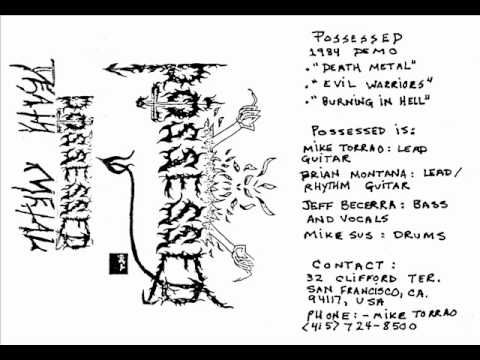 DEATH METAL
POSSESSED
POSSESSED
POSSESSED
1984 DEMO
• "DEATH METAL"
• "EVIL WARRIORS"
• "BURNING IN HELL"
POSSESSED IS:
MIKE TORRAO: LEAD
GUITAR
BRIAN MONTANA: LEAD/
RHYTHM GUITAR
JEFF BECERRA: BASS
AND VOCALS
MIKE SUS: DRUMS
CONTACT:
32 CLIFFORD TER.
SAN FRANCISCO, CA.
94117, USA
PHONE: - MIKE TORRAO
(415) 724-8500